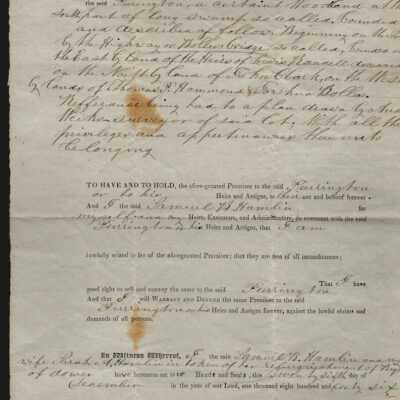 the said Farrington, a certain Woodland at the
South part of Long Swamp so called. bounded
and described as follows. Beginning on the
by the Highway on so called, bounded on
the East by Land of the Heirs of Lewis deceased
on the North by land of Clark, on the West
by lands of Thomas Hammond & Joshua
Refference being had to a plan drawn by
Surveyor of said Lot. With all the
privileges and appertinances thereunto
belonging
TO HAVE AND TO HOLD, the afore-granted Premises to the said Farrington
or to his Heirs and Assigns, to their use and behoof forever.
And I the said Samuel B Hamlin for
myself and my Heirs, Executors, and Administrators, do covenant with the said
Farrington & his Heirs and Assigns, that I am
lawfully seized in fee of the afore-granted Premises; that they are free of all incumbrances;
That I have
good right to sell and convey the same to the said Farrington
And that I will WARRANT AND DEFEND the same Premises to the said
Farrington & his Heirs and Assigns forever, against the lawful claims and
demands of all persons.
In Witness Whereof, I the said Samuel B. Hamlin and my
wife A Hamlin in token of her relinquishment of Right
of dower have hereunto set our Hands and Seals, this twenty sixth day of
December in the year of our Lord, one thousand eight hundred and forty six